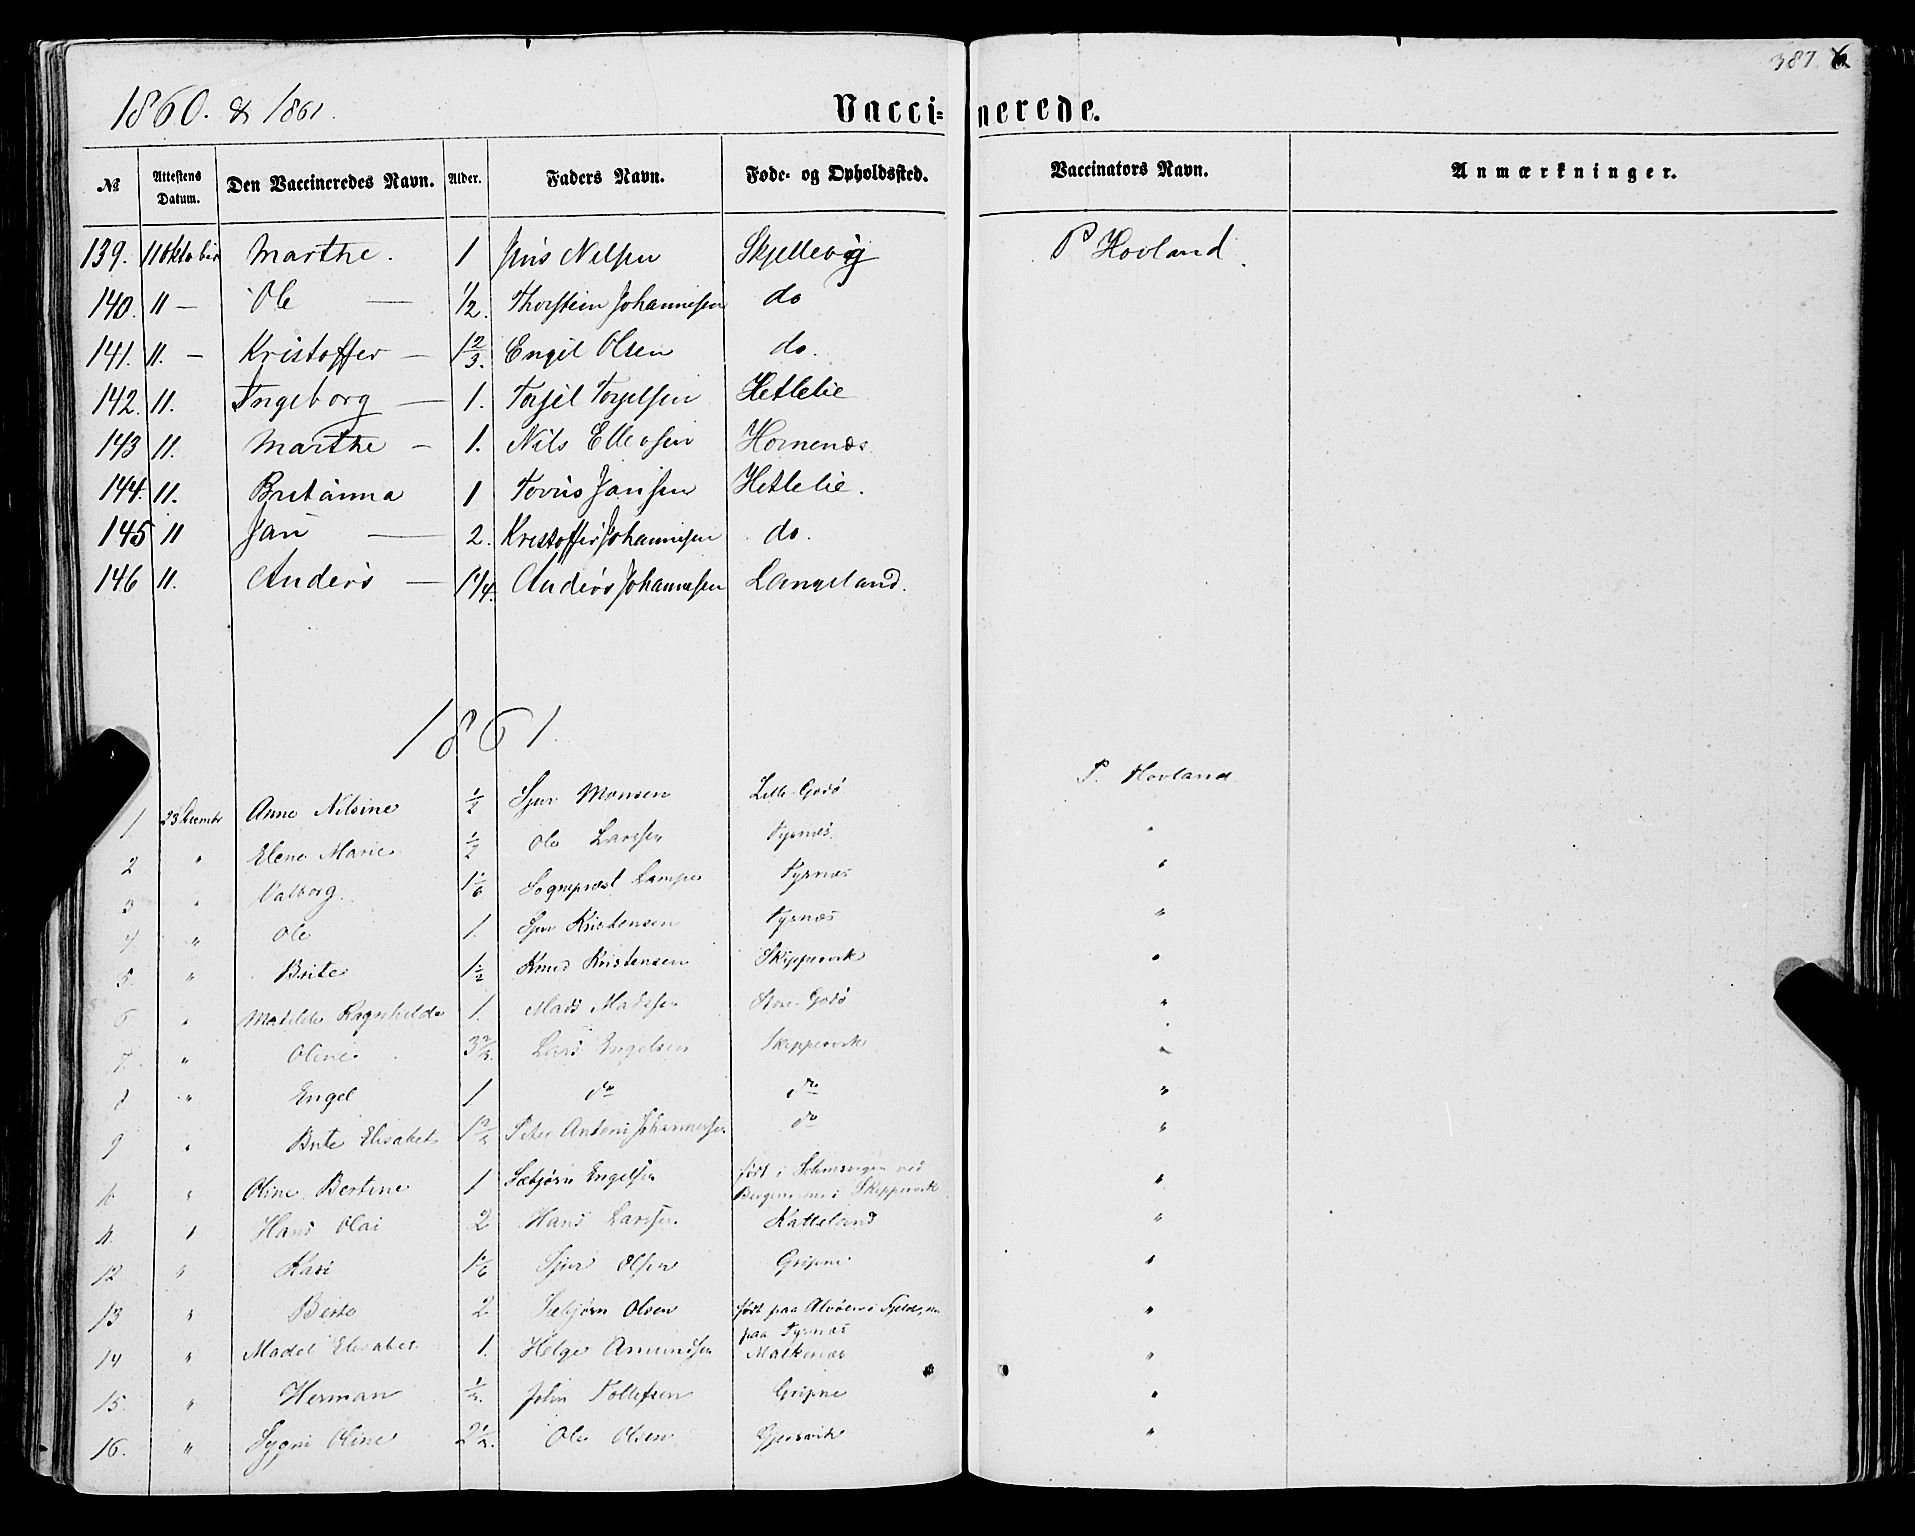 387
1860. & 1861.
Vaccinerede.
№ Attestens Datum. Den Vaccineredes Navn. Alder. Faders Navn. Føde- og Opholdssted. Vaccinators Navn. Anmærkninger.
139. 11 Oktober Marthe. 1 Jens Nilsen Skjellevig P Hovland.
140. 11 — Ole — 1/2. Thorstein Johannesen do
141. 11. — Kristoffer — 1 2/3. Engel Olsen do.
142. 11. Ingeborg — 1. Torgil Torgilsen Hetlelie
143 11. Marthe — 1. Nils Ellevsen Hornenæs.
144. 11. Britanna 1 Jansen Hetlelie.
145 11 Jan — 2. Kristoffer Johannesen do.
146 11. Anders — 1 1/4. Anders Johannesen Langeland.
1861.
1 23 Decembr Anne Nilsine 1/2 Sjur Monsen Lille-Godø P. Hovland
2 " Elene Marie 1/2 Ole Larssen Tysnæs "
3 " Valborg. 1 1/6 Sogneprest Lampe Tysnæs "
4 " Ole 1. Sjur Kristensen Tysnæs "
5 " Brite 1 1/2 Knud Kristensen Skippervik "
6 " Matilde Ragnhilde 1. Mads Madssen Store-Godø "
7. " Oline 3 1/2. Lars Engelsen Skippervik "
8 " Engel 1 do do "
9 " Brite Elisabet Peter Antoni Johannessen do "
10 " Oline Bertine 1 Sæbjørn Engelsen født i ved
Bergen nu i Skippervik "
11. " Hans Olai 2 Hans Larssen Katteland "
12 " Kari 1 1/6 Sjur Olsen Gripne "
13 " Berte 2 Sæbjørn Olsen født paa Alvøen i Fjeld, nu
paa Tysnæs "
14 " Madel Elisabet 1. Helge Amundsen Malkenæs "
15. " Herman 1/2. John Tollefsen Gripne "
16. " Sygni Oline 2 1/2. Ole Olsen Gjersvik "